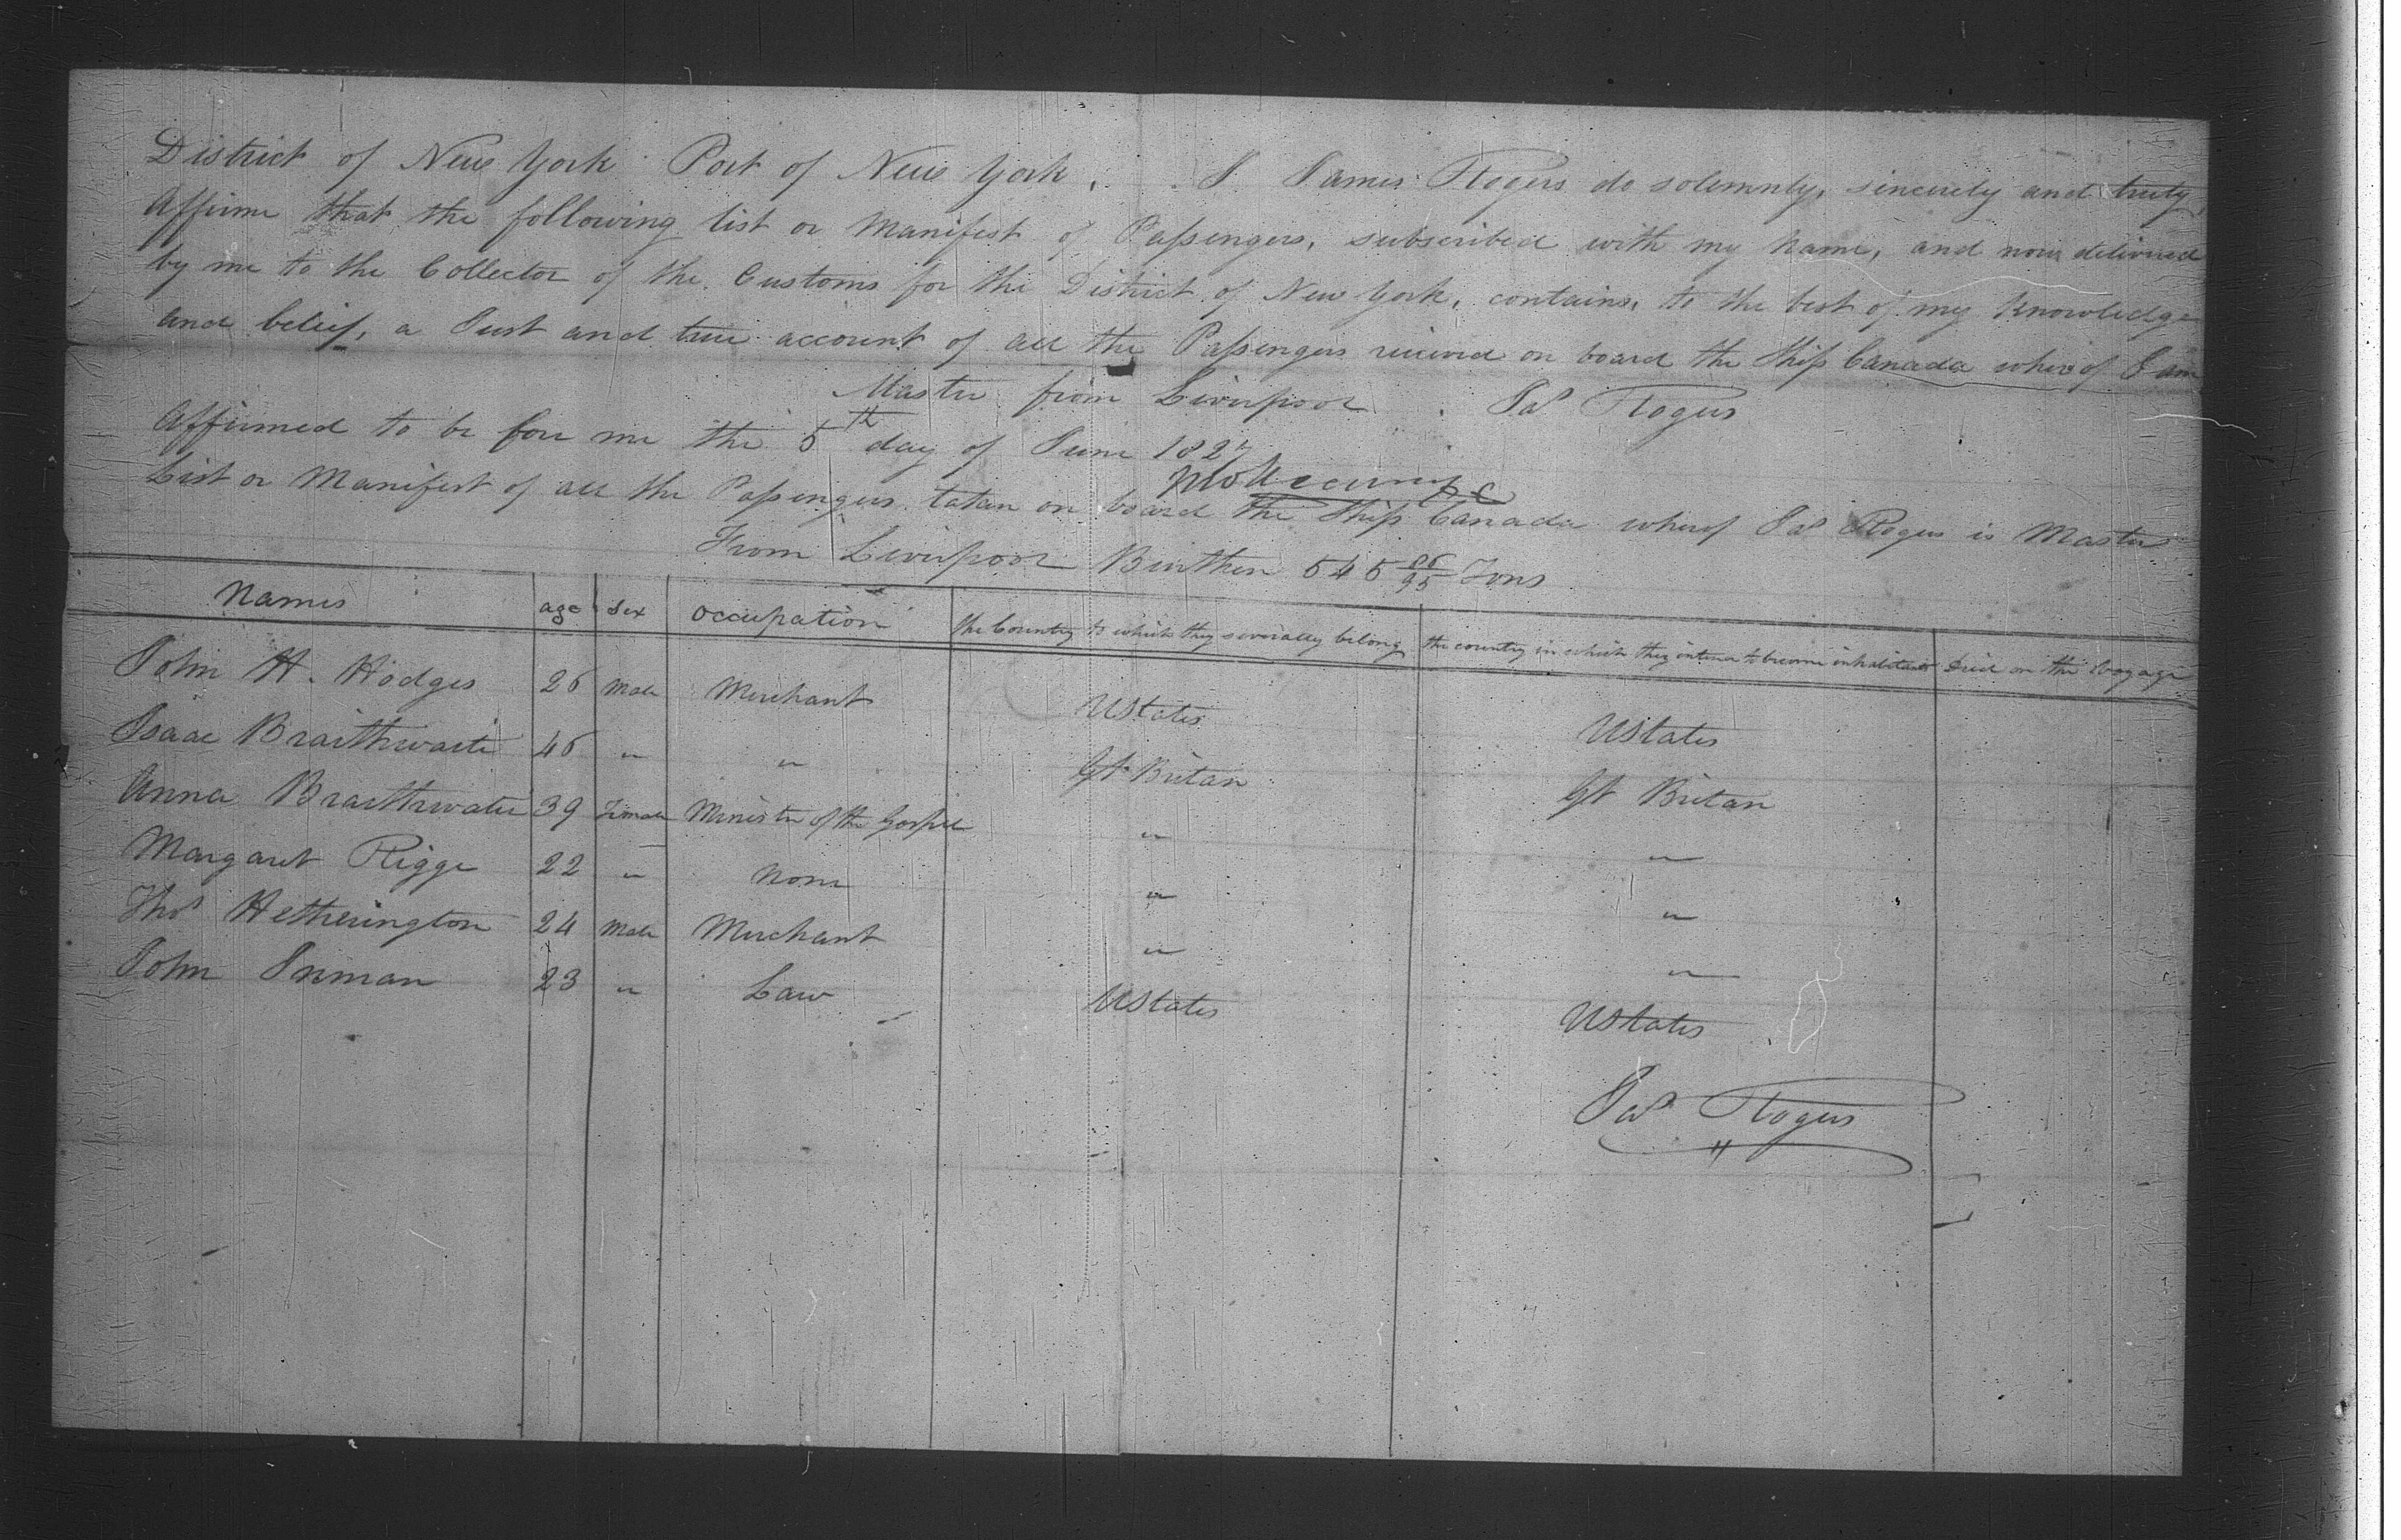 District of New York Port of New York, I James Rogers do solemnly, sincerely and truly,
Affirm that the following list or Manifest of Passengers, subscribed with my Name, and now delivered
by me to the Collector of the Customs for the District of New York, contains, to the best of my Knowledge
and belief, a Just and true account of all the Passengers received on board the Ship Canada where of I am
Master from Liverpool Jas Rogers
Affirmed to be fore me the 5th day of June 1827
List or Manifest of all the Passengers takan on board the Ship Canada wherof Jas Rogers is Master
From Liverpool Burthen 545 86/95 Tons
Names age Sex occupation the Country to which they severally belong the country in which they intend to become inhabitants Died on the Voyage
John H. Hodges 26 Male Merchant UStates UStates
Isaac Braithwaite 46 " " Gt Britan Gt Britan
Anna Braithwaite 39 Female Minister of the Gospel " "
Margaret Rigge 22 " None " "
Thos Hetherington 24 Male Merchant " "
John Inman 23 " Law UStates UStates
Jas Rogers